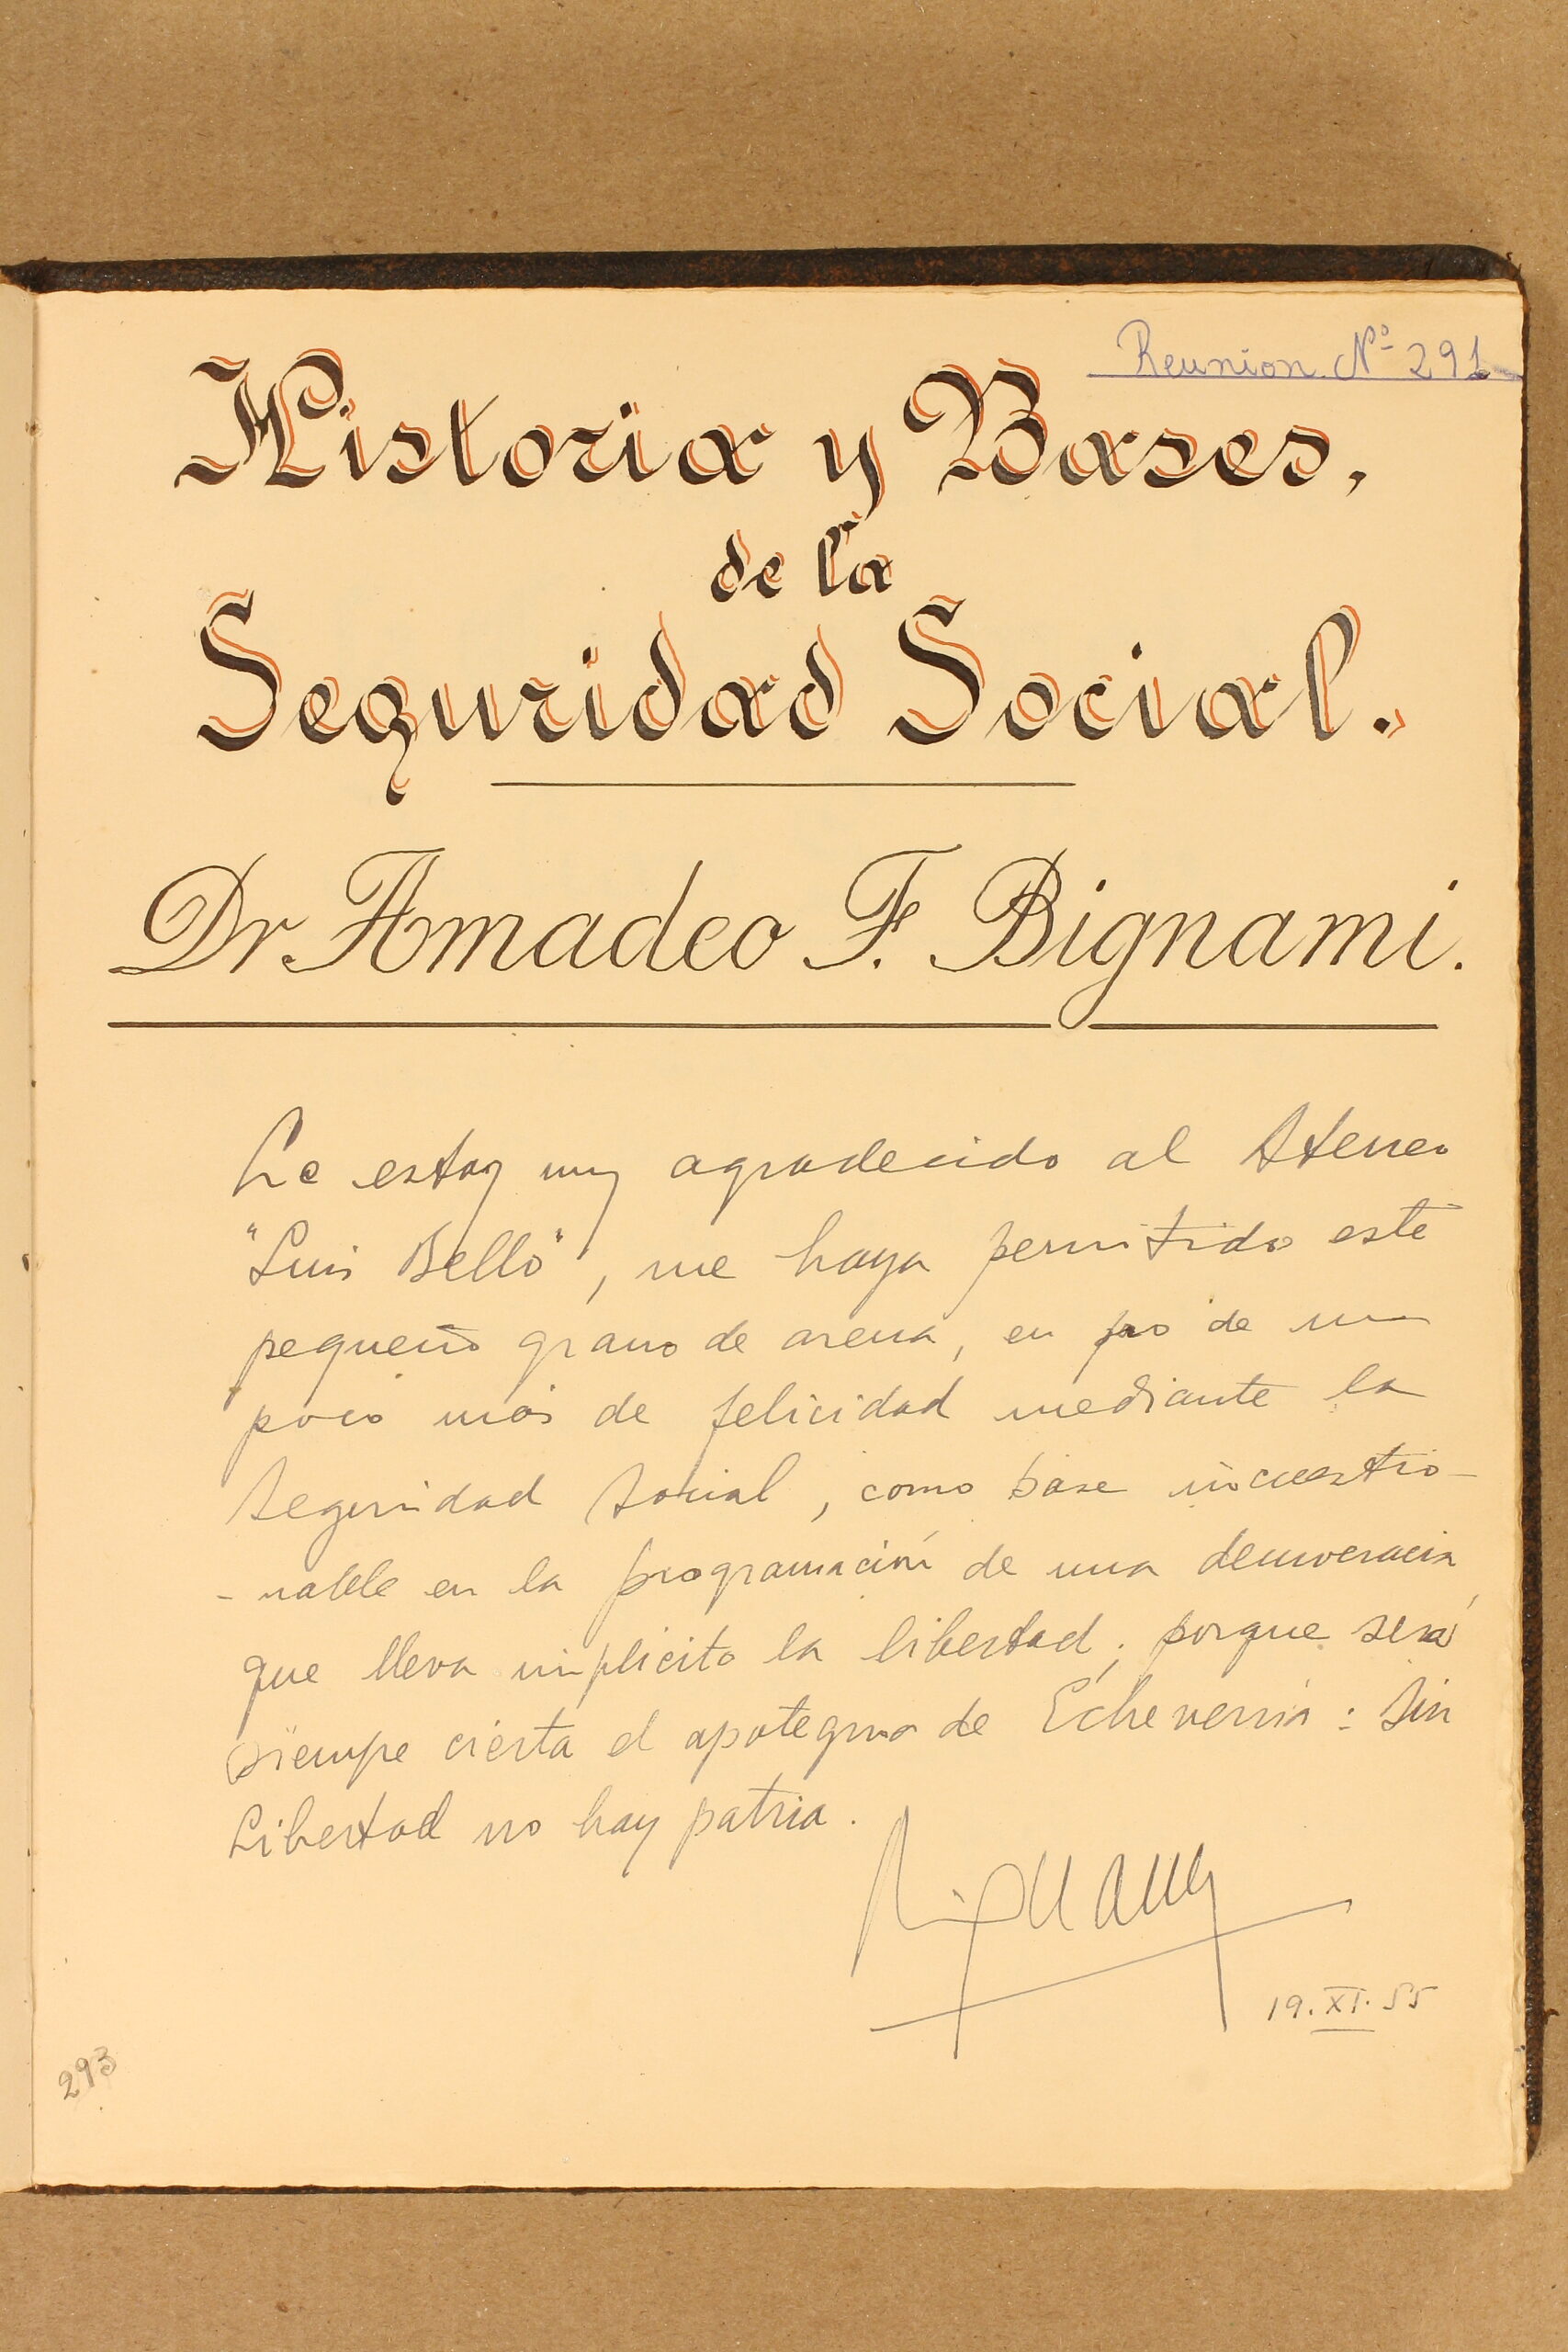 Reunion Nº 291
Historia y Bases,
de la
Seguridad Social.
Dr. Amadeo F. Bignami.
Le estoy muy agradecido al Ateneo
"Luis Bello", me haya permitido este
pequeño grano de arena, en pro de un
poco más de felicidad mediante la
Seguridad Social, como base incuestio-
-nable en la programación de una democracia
que lleva implícito la libertad; porque será
siempre cierta el apotegma de Echeverría: Sin
Libertad no hay patria.
Bignami
19.XI.55
293